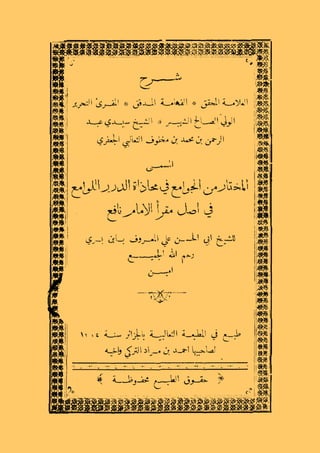 شرح
العلامة المحقق * الفهامة المدقق * المقرئ التحرير
الولي الصالح الشهير * الشيخ سيدي عبد
الرحمن بن محمد بن مخلوف الثعالبي الجعفري
المسمى
المختار من الجوامع في محاذاة الدرر اللوامع
في اصل مقرأ الامام نافع
للشيخ ابي الحسن علي المعروف بابن بري
رحم الله الجميع
امين
طبع في المطبعة الثعالبية بالجزائر سنة
لصاحبيها احمد بن مراد التركي واخيه
حقوق الطبع محفوظة